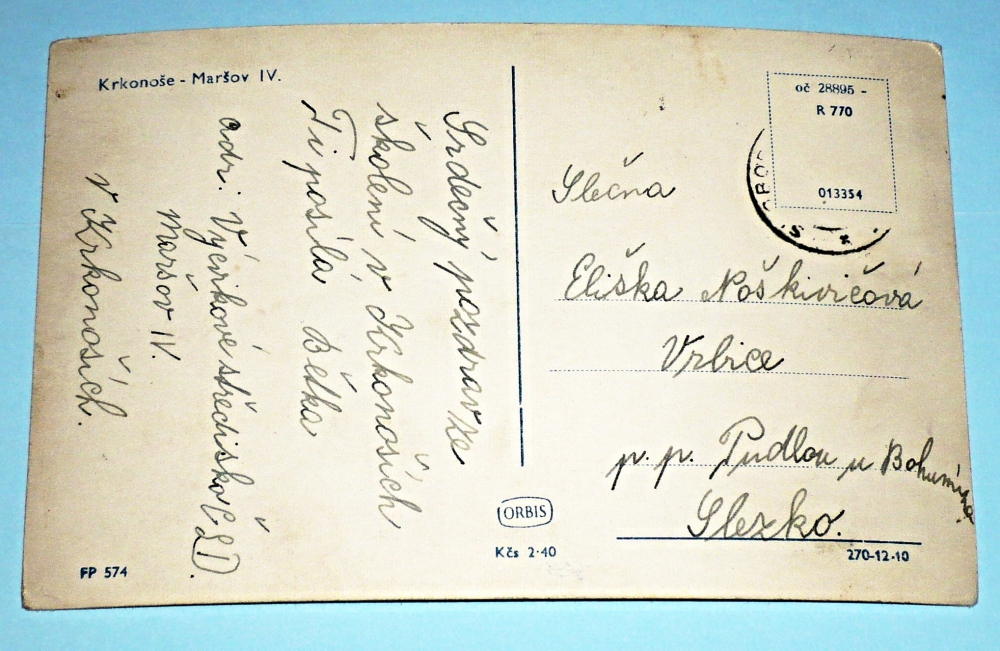 Krkonoše - Maršov IV.
Srdečný pozdrav ze
školení v Krkonoších
Ti posílá Bětka
adr. Výcvikové středisko ČSD.
Maršov IV.
v Krkonoších.
FP 574
ORBIS
Kčs 2·40
oč 28895 -
R 770
013354
Slečna
Eliška Noškivičová
Vrbice
p. p. Pudlov u Bohumína
Slezko.
270-12-10